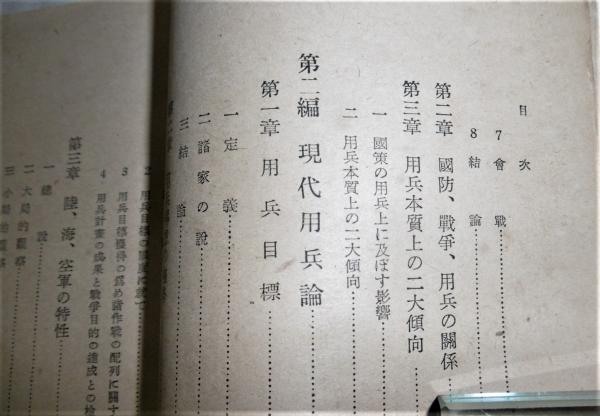 目次
7 會戰
8 結論
第二章 國防、戰爭、用兵の關係
第三章 用兵本質上の二大傾向
一 國策の用兵上に及ぼす影響
二 用兵本質上の二大傾向
第二編 現代用兵論
第一章 用兵目標
一 定義
二 諸家の說
三 結論
3 用兵目標獲得の爲め諸作戰の配列に關す
4 用兵計畫の成果と戰爭目的の達成との
第三章 陸、海、空軍の特性
一 總說
二 大局的觀察
三 小局的觀察